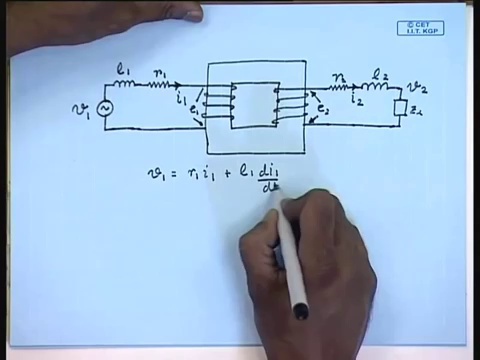 © CET
I.I.T. KGP
l₁ r₁ r₂ l₂
v₁ i₁ e₁ e₂ i₂ v₂ Z_L
v₁ = r₁ i₁ + l₁ di₁/dt